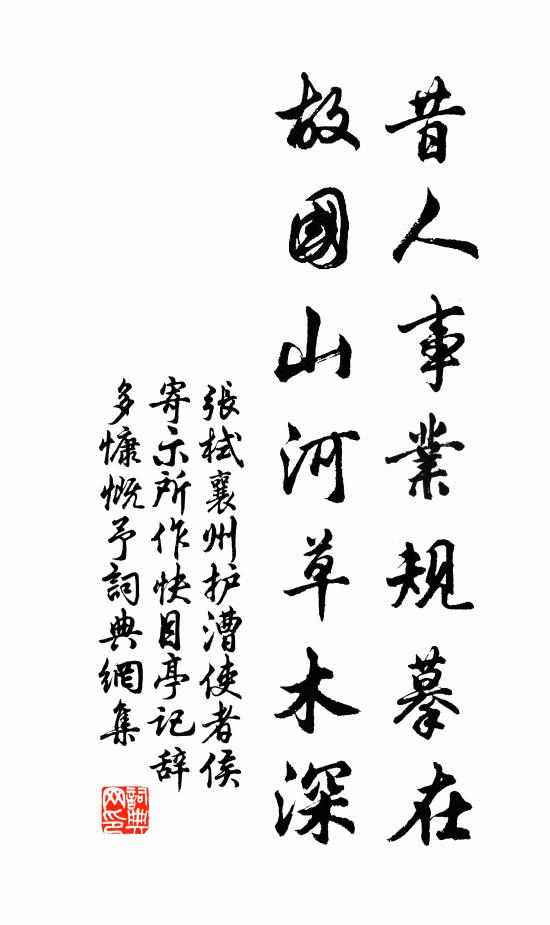 昔人事業規摹在
故國山河草木深
張栻襄州护漕使者侯
寄示所作快目亭记辞
多慷慨予詞典網集
詞典
网印